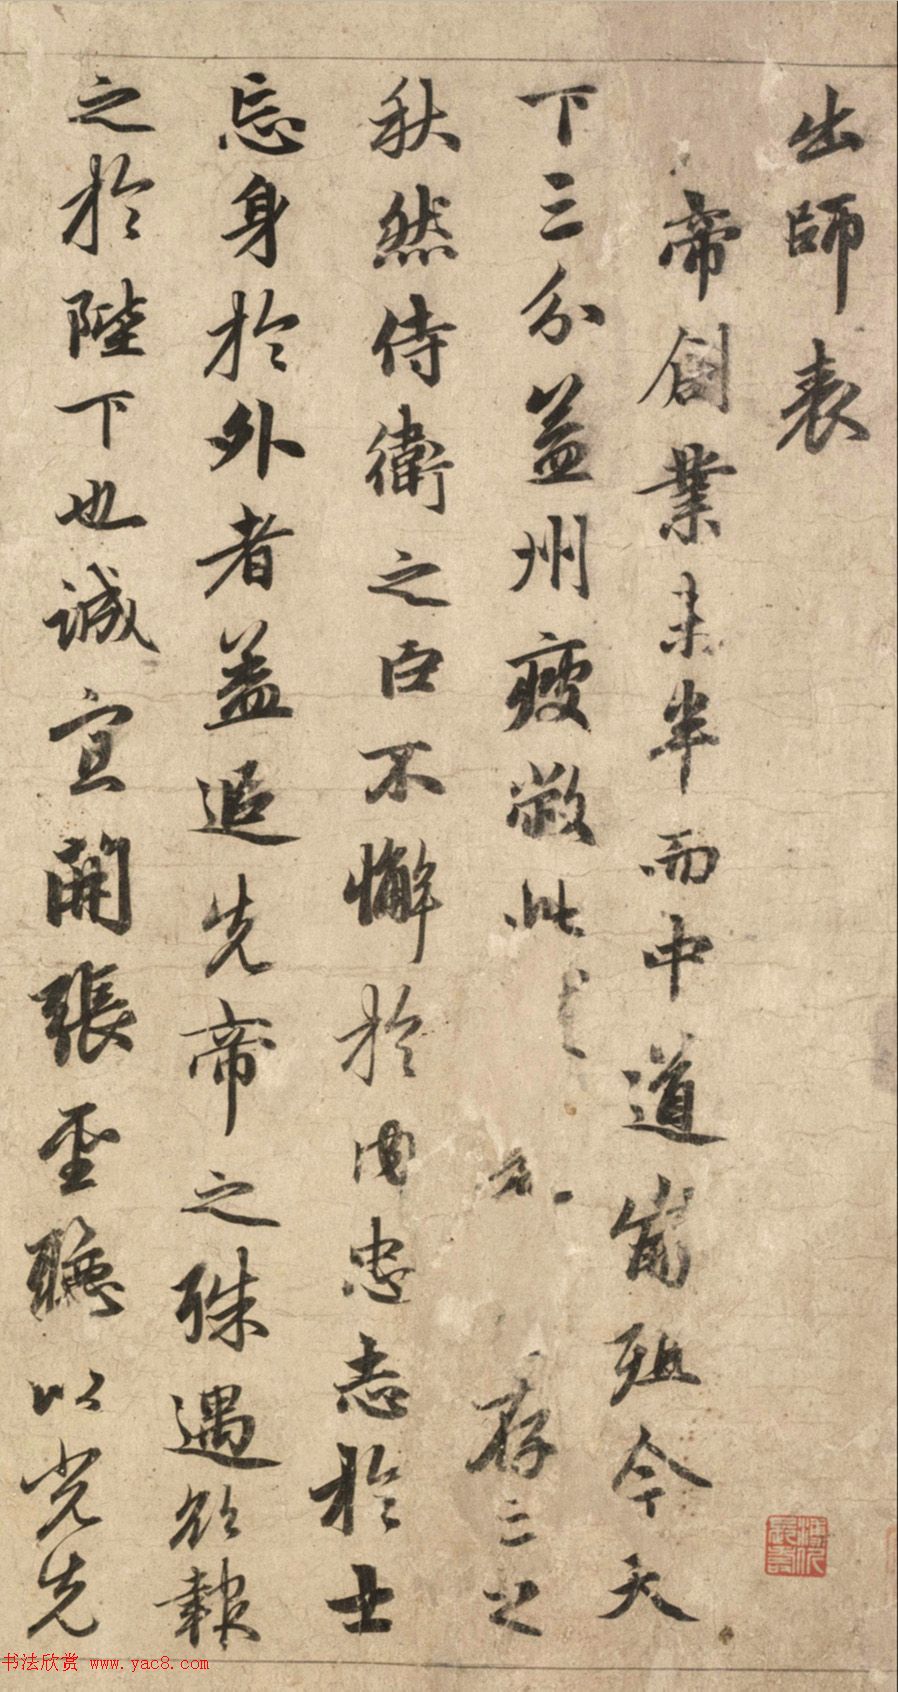 出師表
帝創業未半而中道崩殂今天
下三分益州疲敝此存亡之
秋然侍衛之臣不懈於内忠志於士
忘身於外者蓋追先帝之殊遇欲報
之於陛下也誠宜開張聖聽以光先
书法欣赏 www.yac8.com